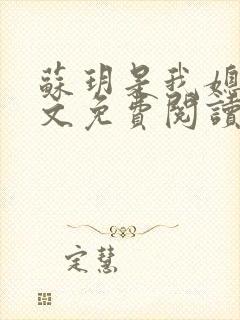 蘇玥是我媽
文免費閱讀
定慧